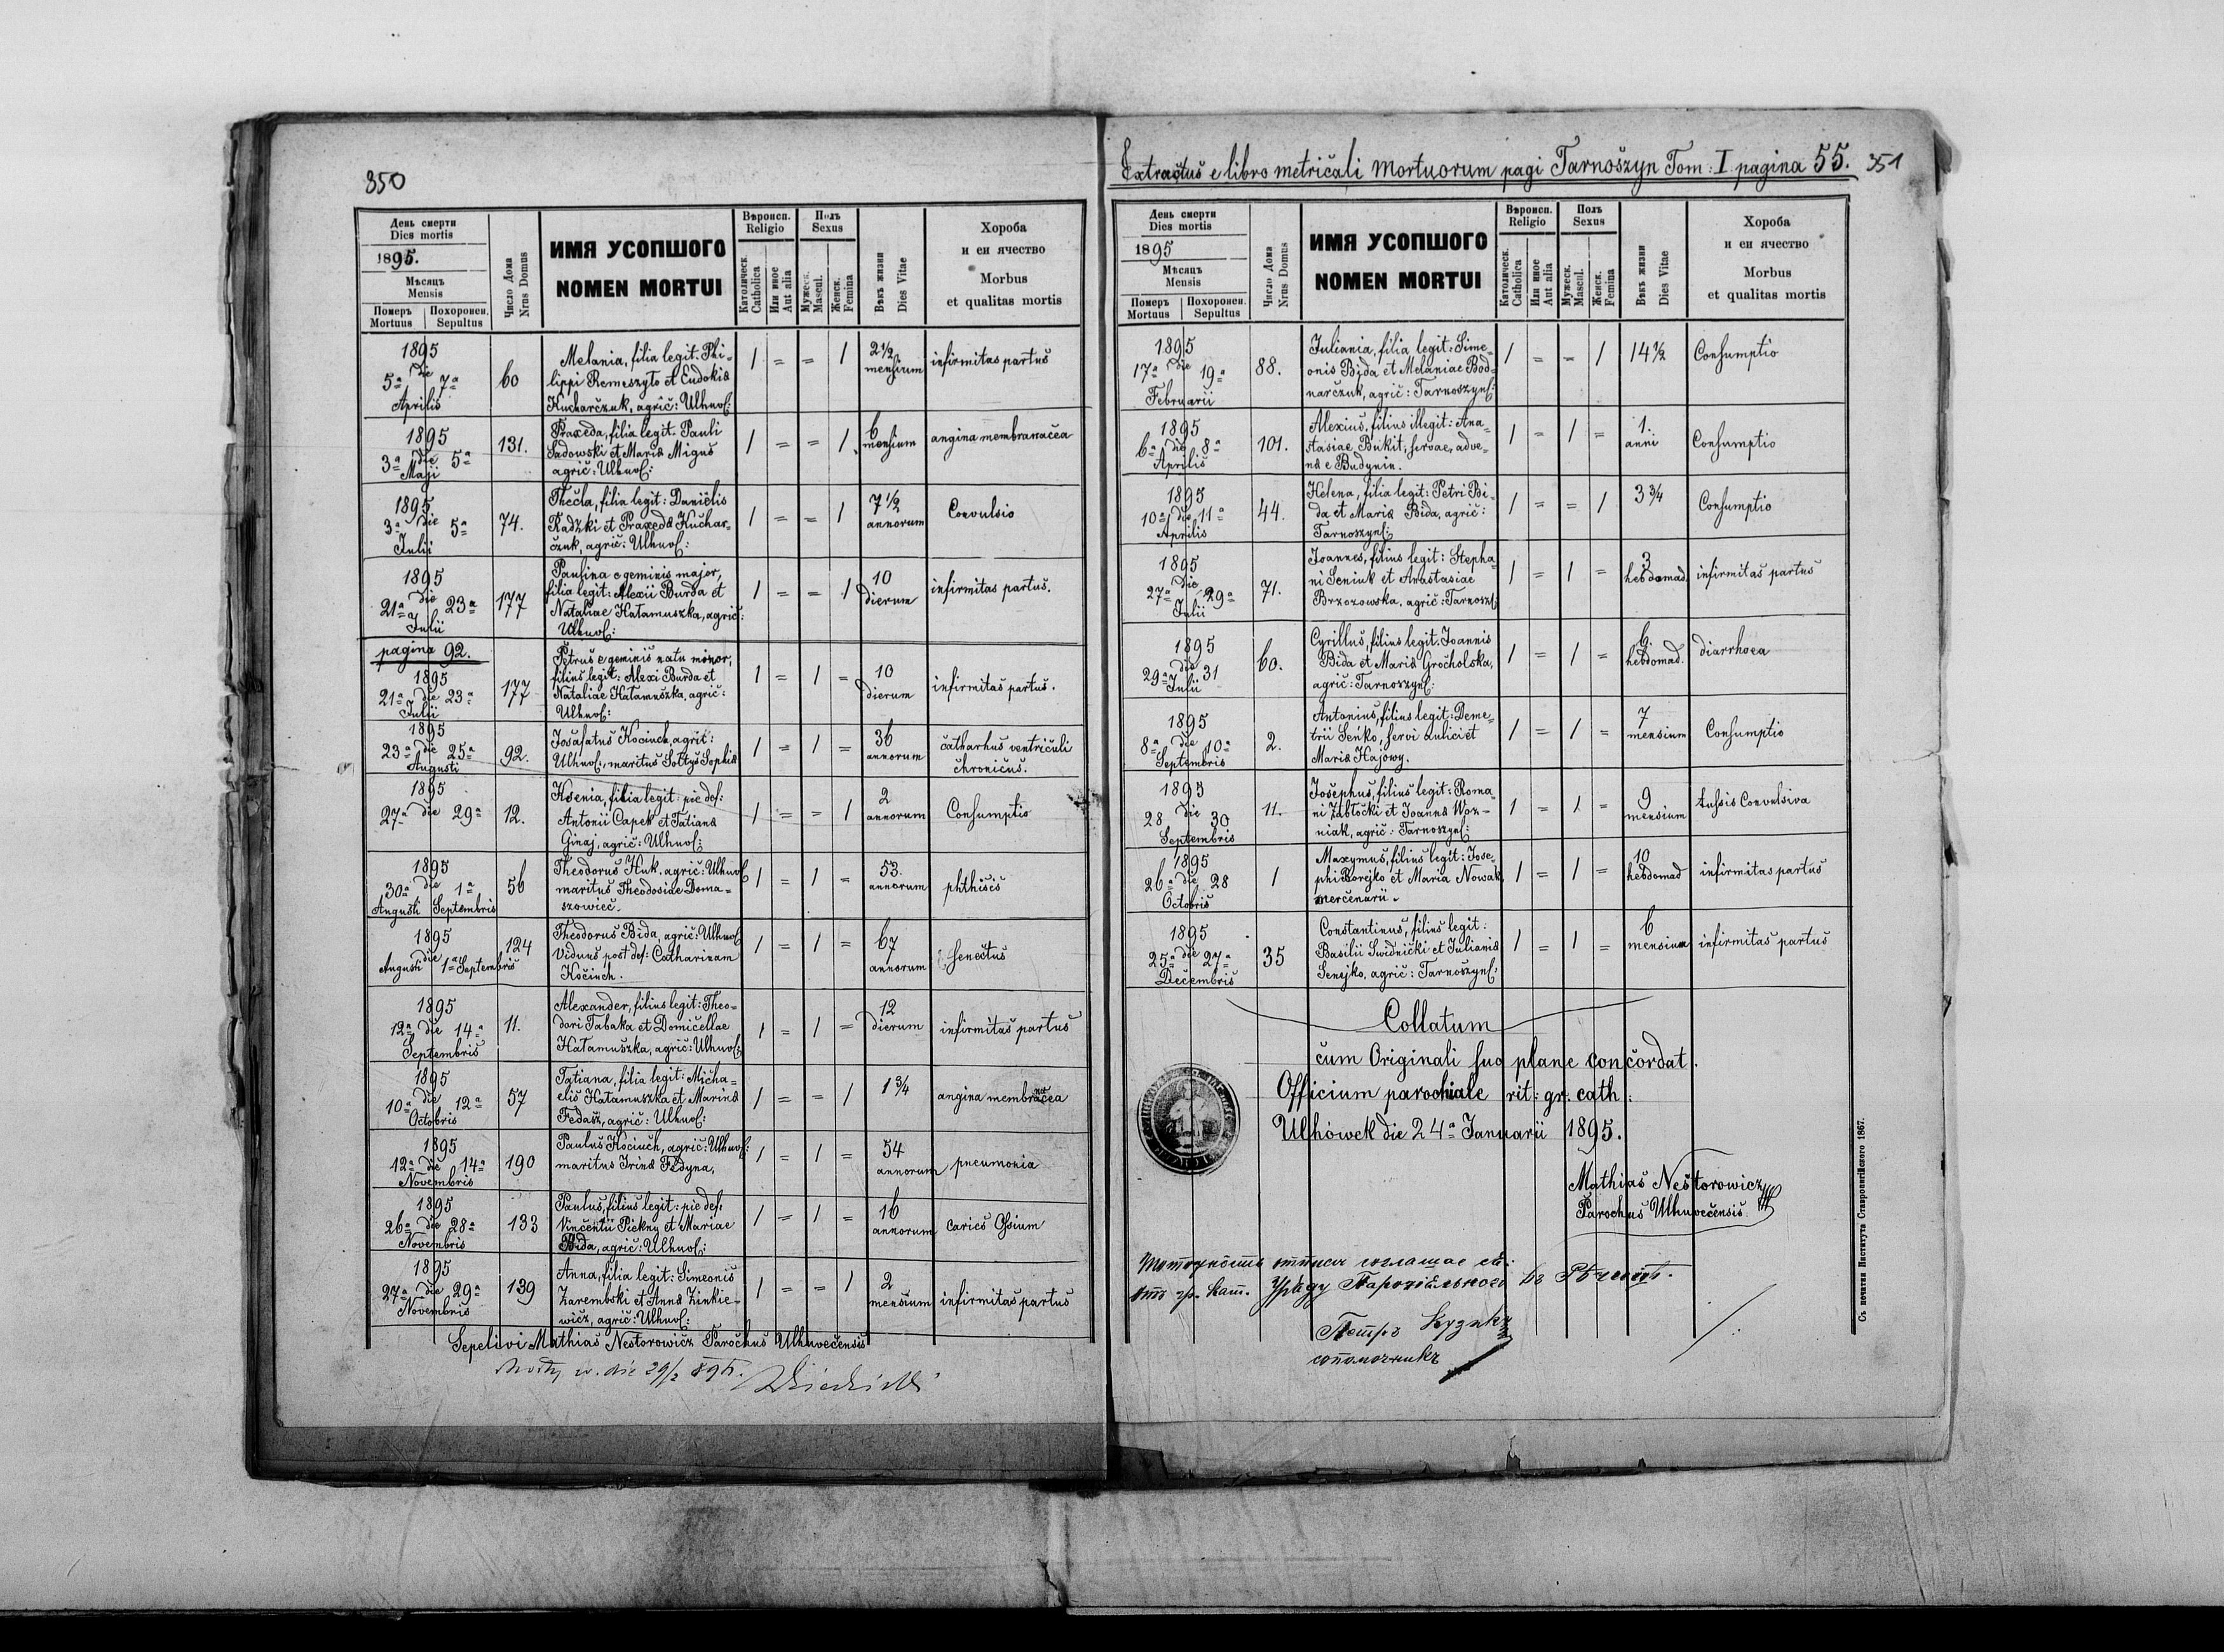 350
День смерти
Dies mortis
1895.
Мѣсяць
Mensis
Померъ
Mortuus
Похоронен.
Sepultus
Число Дома
Nrus Domus
ИМЯ УСОПШОГО
NOMEN MORTUI
Вѣроисп.
Religio
Католическ.
Catholica
Или иное
Aut alia
Полъ
Sexus
Мужеск.
Mascul.
Женск.
Femina
Вѣкъ жизни
Dies Vitae
Хороба
и еи ячество
Morbus
et qualitas mortis
1895
die
5ª 7ª
Aprilis
60
Melania, filia legit: Phi-
lippi Remeszyło et Eudokia
Kucharčzuk, agrič: Ulhuvſ:
1 = = 1
2 1/2
mensium
infirmitas partus
1895
die
3ª 5ª
Maji
131.
Praxeda, filia legit. Pauli
Sadowski et Maria Migus
agrič: Ulhuvſ:
1 = = 1
6
mensium
angina membranačea
1895
die
3ª 5ª
Julii
74.
Thečla, filia legit: Danielis
Radzki et Praxeda Kuchar-
čzuk, agrič: Ulhuvſ:
1 = = 1
7 1/2
annorum
Convulsio
1895
die
21ª 23ª
Julii
177
Paulina e geminis major,
filia legit: Alexii Burda et
Nataliae Hatamuszka, agrič:
Ulhuvſ:
1 = = 1
10
dierum
infirmitas partus.
pagina 92.
1895
21ª die 23ª
Julii
177
Petrus e geminis natu minor,
filius legit: Alexi Burda et
Nataliae Hatamuszka, agrič:
Ulhuvſ:
1 = 1 =
10
dierum
infirmitas partus.
1895
23ª die 25ª
Augusti
92.
Josafatus Kociuch, agrič:
Ulhuvſ., maritus Sołtys Sophia
1 = 1 =
36
annorum
čatharhus ventričuli
čhroničus.
1895
27ª die 29ª
12.
Ksenia, filia legit: pie def:
Antonii Capek et Tatiana
Ginaj, agrič: Ulhuvſ:
1 = = 1
2
annorum
Conſumptio
1895
30ª die 1ª
Augusti Septembris
56
Theodorus Huk, agrič: Ulhuvſ
maritus Theodosiae Doma-
szowieč.
1 = 1 =
53.
annorum
phthisis
1895
die
Augusti 1ª Septembris
124
Theodorus Bida, agrič: Ulhuvſ
Viduus post def: Catharinam
Kočiuch.
1 = 1 =
67
annorum
Senečtus
1895
12ª die 14ª
Septembris
11.
Alexander, filius legit: Theo-
dori Tabaka et Domičellae
Hatamuszka, agrič: Ulhuvſ:
1 = 1 =
12
dierum
infirmitas partus
1895
10ª die 12ª
Octobris
57
Tatiana, filia legit: Micha-
elis Hatamuszka et Marina
Fedasz, agrič: Ulhuvſ:
1 = = 1
1 3/4
angina membranačea
1895
12ª die 14ª
Novembris
190
Paulus Kociuch, agrič: Ulhuvſ:
maritus Irina Fedyna,
1 = 1 =
54
annorum
pneumonia
1895
26ª die 28ª
Novembris
133
Paulus, filius legit: pie def:
Vinčentii Piekny et Mariae
Bida, agrič: Ulhuvſ:
1 = 1 =
16
annorum
caries Oſsium
1895
27ª die 29ª
Novembris
139
Anna, filia legit: Simeonis
Zarembski et Anna Zinkie-
wicz, agrič: Ulhuvſ:
1 = = 1
2
mensium
infirmitas partus
Sepelivi Mathias Nestorowicz Paročhus Ulhuvečensis
Extractus e libro metričali Mortuorum pagi Tarnoszyn Tom: I. pagina 55. 351
День смерти
Dies mortis
1895
Мѣсяць
Mensis
Померъ
Mortuus
Похоронен.
Sepultus
Число Дома
Nrus Domus
ИМЯ УСОПШОГО
NOMEN MORTUI
Вѣроисп.
Religio
Католическ.
Catholica
Или иное
Aut alia
Полъ
Sexus
Мужеск.
Mascul.
Женск.
Femina
Вѣкъ жизни
Dies Vitae
Хороба
и еи ячество
Morbus
et qualitas mortis
1895
17ª die 19ª
Februarii
88.
Juliania, filia legit: Sime-
onis Bida et Melaniae Bod-
narčzuk, agrič: Tarnoszynſ:
1 = = 1
14 1/2
Conſumptio
1895
6ª die 8ª
Aprilis
101.
Alexius, filius illegit: Ana-
stasiae Bukit, servae, adve-
na e Budynin.
1 = 1 =
1.
anni
Conſumptio
1895
10ª die 11ª
Aprilis
44.
Helena, filia legit: Petri Bi-
da et Maria Bida, agrič:
Tarnoszynſ:
1 = = 1
3 3/4
Conſumptio
1895
die
27ª 29ª
Julii
71.
Joannes, filius legit: Stepha-
ni Seniuk et Anastasiae
Brzozowska, agrič: Tarnoszſ:
1 = 1 =
3
hebdomad.
infirmitas partus
1895
die
29ª 31
Julii
60.
Cyrillus, filius legit: Joannis
Bida et Maria Gročholska,
agrič: Tarnoszynſ:
1 = 1 =
6.
hebdomad.
diarrhoea
1895
8ª die 10ª
Septembris
2.
Antonius, filius legit: Deme-
trii Seńko, servi aulici et
Maria Hajowy.
1 = 1 =
7
mensium
Conſumptio
1895
28 die 30
Septembris
11.
Josephus, filius legit: Roma-
ni Zabłočki et Joanna Woz-
niak, agrič: Tarnoszynſ:
1 = 1 =
9
mensium
tuſsis Convulsiva
1895
26ª die 28
Octobris
1
Maxymus, filius legit: Jose-
phi Borejko et Maria Nowak
merčenarii.
1 = 1 =
10
hebdomad
infirmitas partus
1895
25ª die 27ª
Dečembris
35
Constantinus, filius legit:
Basilii Swidnički et Juliania
Senejko, agrič: Tarnoszynſ:
1 = 1 =
6
mensium
infirmitas partus
Collatum
čum Originali suo plane čončordat.
Officium parochiale rit: gr: cath:
Ulhówek die 24ª Januarii 1895.
Mathias Nestorowicz
Parochus Ulhuvečensis
сопомочникъ
Съ печатни Института Ставропигійского 1867.